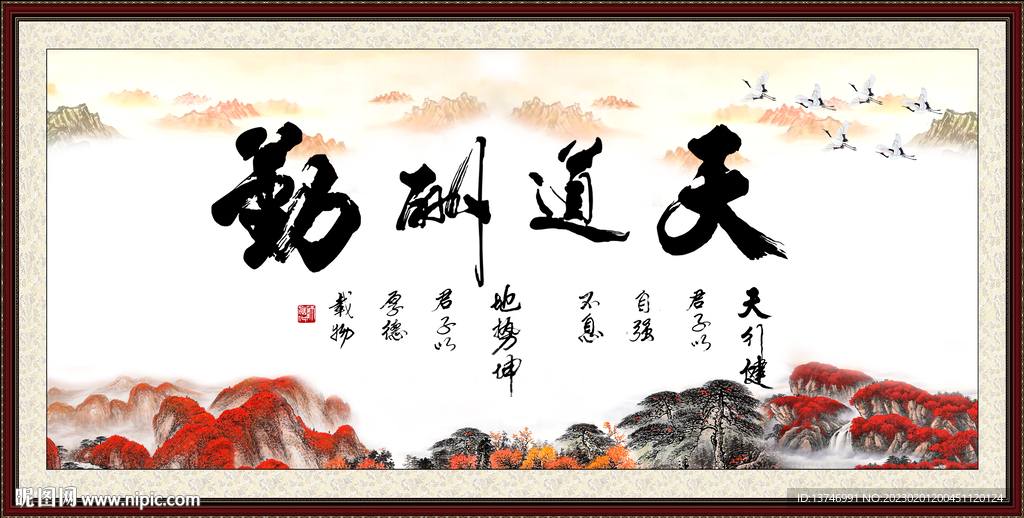 天道酬勤
天行健
君子以
自强
不息
地势坤
君子以
厚德
载物
昵图网 www.nipic.com
ID:13746991 NO:20230201200451120124